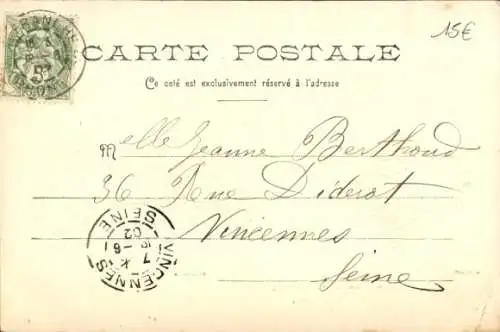 15€
CARTE POSTALE
Ce coté est exclusivement réservé à l'adresse
Melle Jeanne Berthoud
36 Rue Diderot
Vincennes
Seine
VINCENNES
SEINE
02